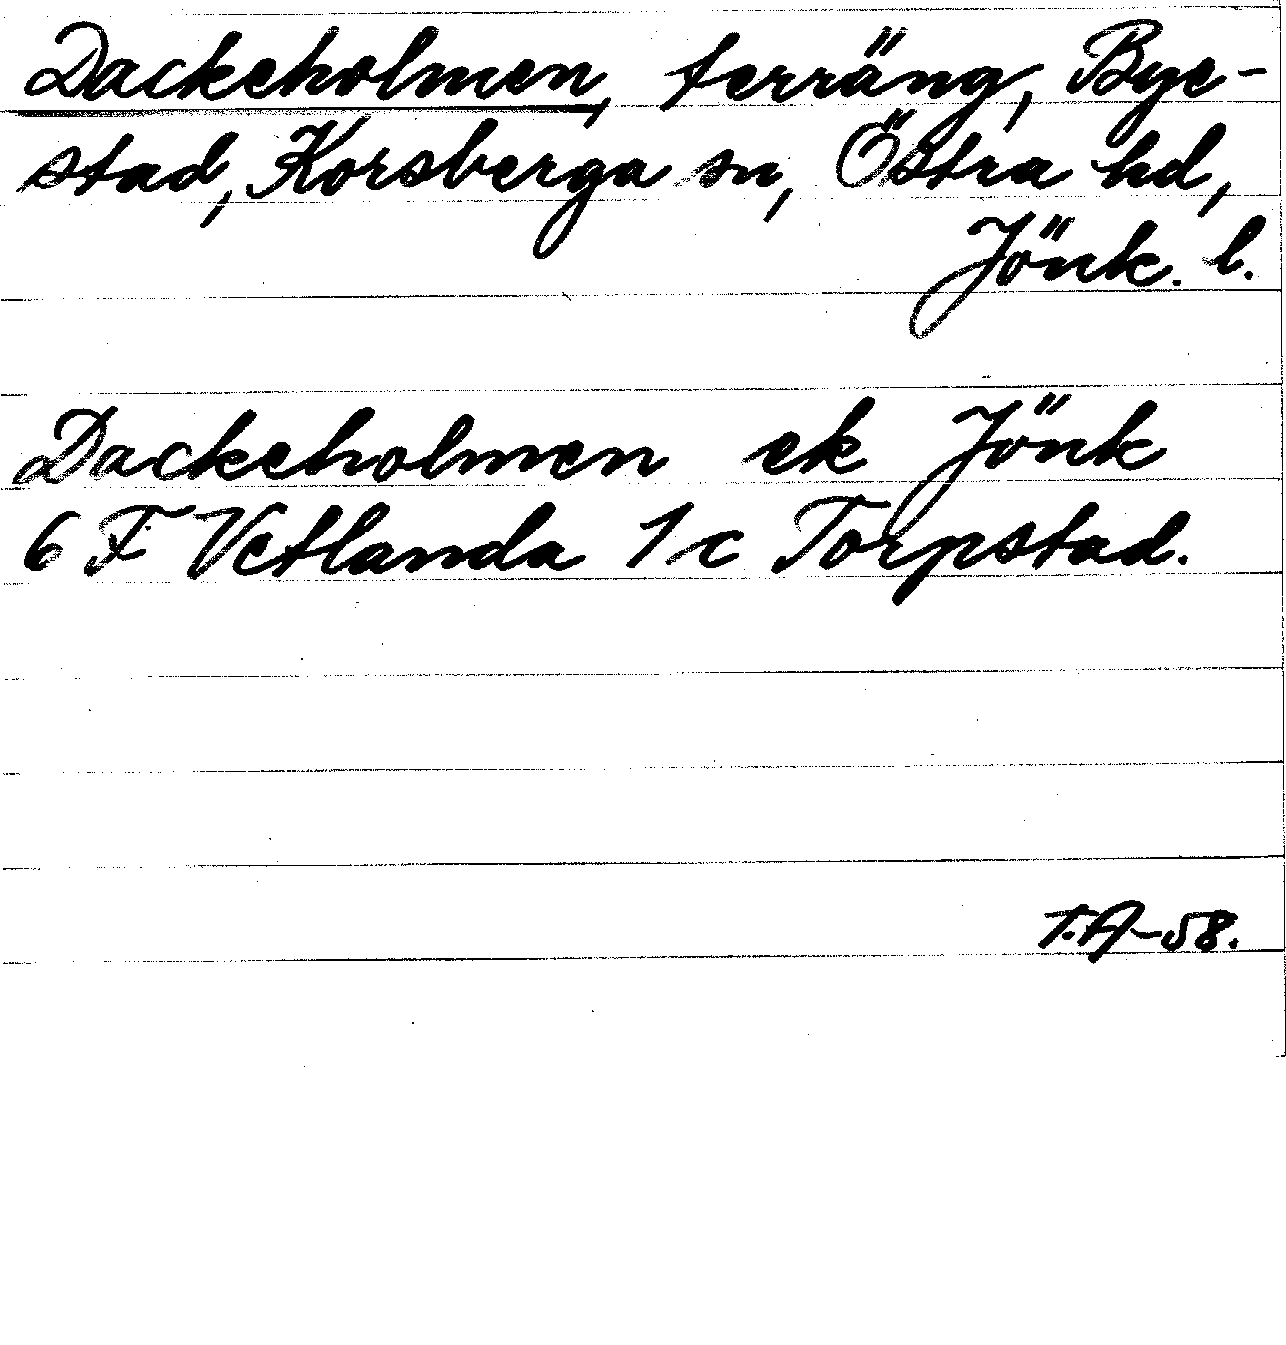 Dackeholmen, terräng, Bye-
stad, Korsberga sn, Östra hd,
Jönk. l.
Dackeholmen ek Jönk
6 F Vetlanda 1 c Torpstad.
T.A-58.